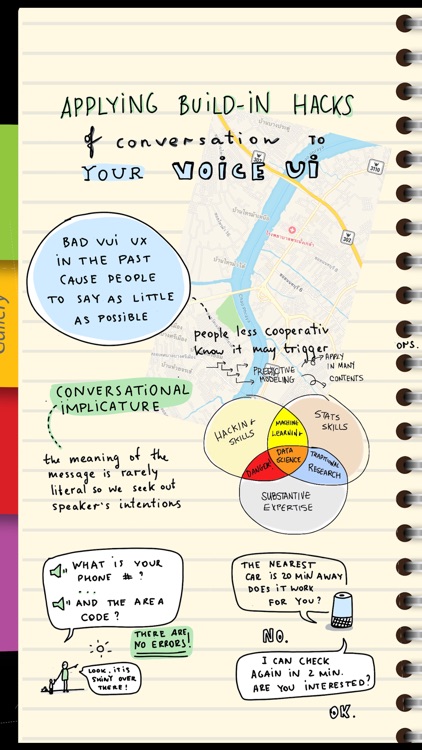 APPLYING BUILD-IN HACKS
of conversation TO
YOUR VOICE UI
3110
302
BAD VUI UX
IN THE PAST
CAUSE PEOPLE
TO SAY AS LITTLE
AS POSSIBLE
people less cooperativ
know it may trigger
PREDICTIVE
MODELING
APPLY
IN MANY
CONTENTS
OP'S.
Gallery
CONVERSATIONAL
IMPLICATURE
the meaning of the
message is rarely
literal so we seek out
speaker's intentions
HACKING
SKILLS
MACHINE
LEARNING
STATS
SKILLS
DANGER
DATA
SCIENCE
TRADITIONAL
RESEARCH
SUBSTANTIVE
EXPERTISE
WHAT IS YOUR
PHONE #?
...
AND THE AREA
CODE?
THERE ARE
NO ERRORS!
LOOK, IT IS
SHINY OVER
THERE!
THE NEAREST
CAR IS 20 MIN AWAY
DOES IT WORK
FOR YOU?
NO.
I CAN CHECK
AGAIN IN 2 MIN.
ARE YOU INTERESTED?
OK.